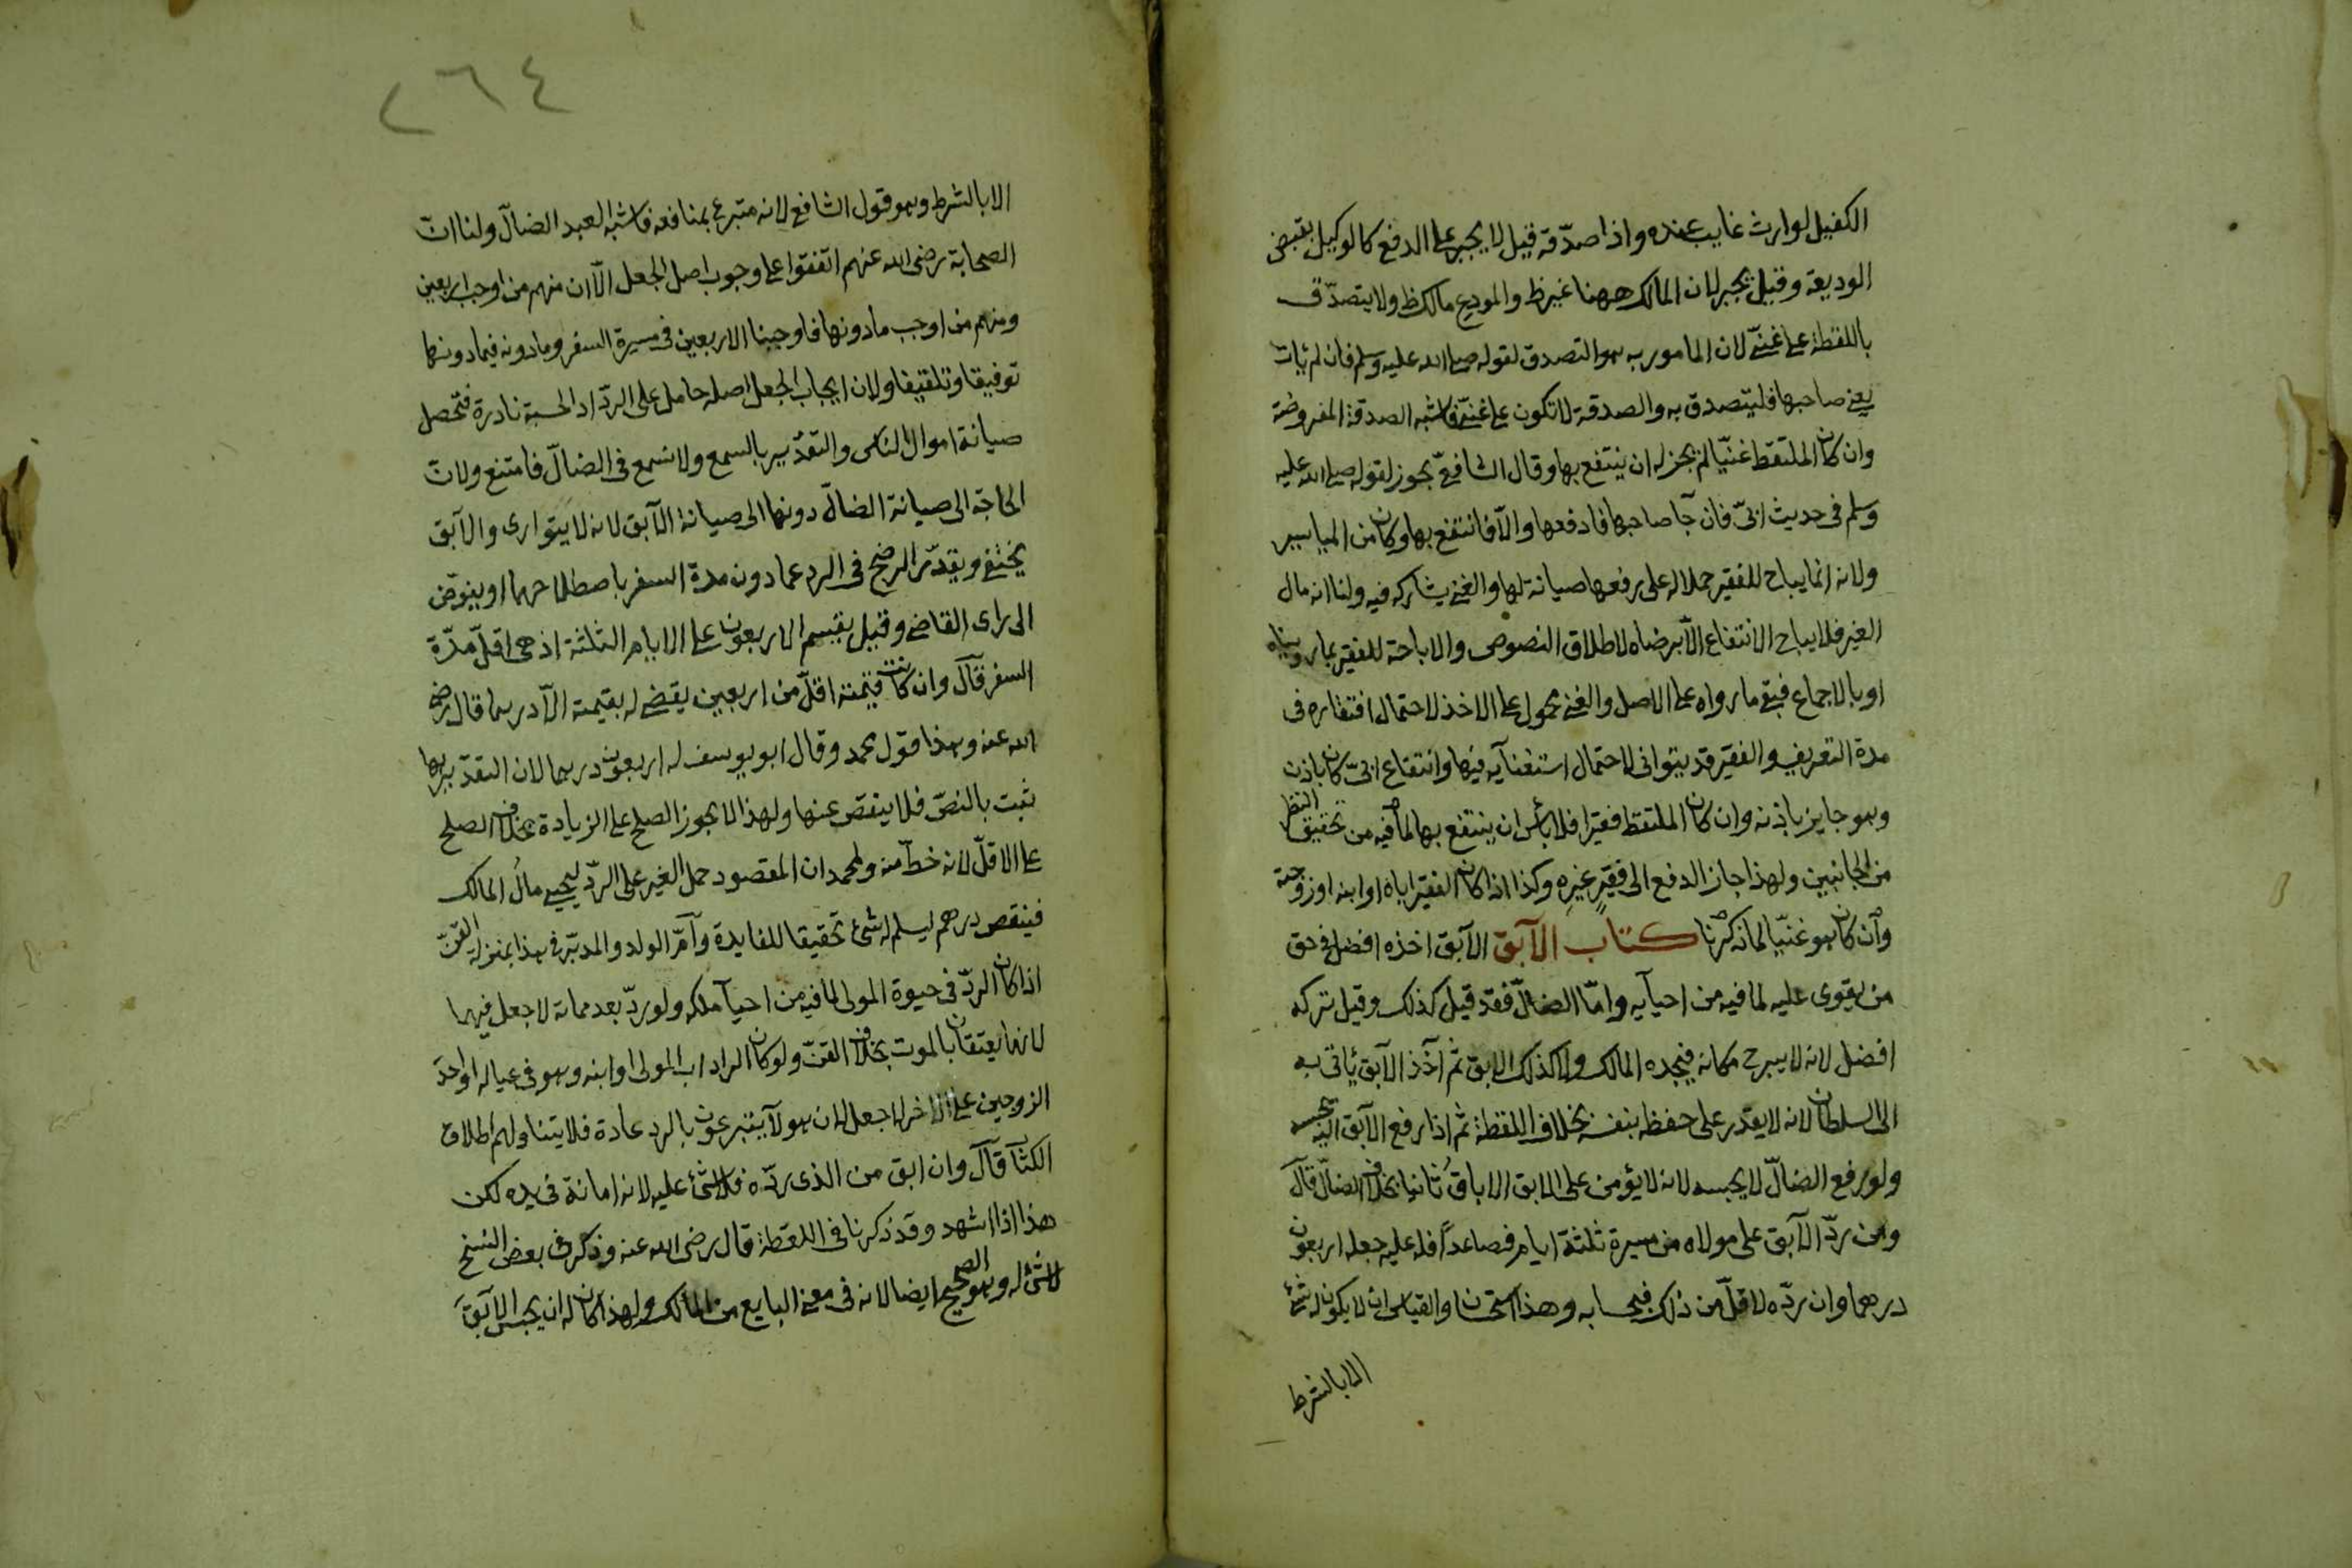 الكفيل لوارث غايب عنده واذا صدّقه قيل لا يجبر على الدفع كالوكيل بقبض
الوديعة وقيل يجبر لان المالك ههنا غير ظ والمودع مالك ظ ولا يتصدّق
باللقطة على غنىّ لان المامور به هو التصدق لقوله صلى الله عليه وسلم فان لم يات
يعنى صاحبها فليتصدق به والصدقة لا تكون على غنىّ فاشبه الصدقة المفروضة
وان كان الملتقط غنيّا لم يجز له ان ينتفع بها وقال الشافعىّ يجوز لقوله صلى الله عليه
وسلم فى حديث ابىّ فان جآ صاحبها فادفعها والّا فانتفع بها وكان من المياسير
ولانه انما يباح للفقير حملا له على رفعها صيانة لها والغنى يشاركه فيه ولنا انه مال
الغير فلا يباح الانتفاع الّا برضاه لاطلاق النصوص والاباحة للفقير بما رويناه
او بالاجماع فبقى ما رواه على الاصل والغنى محمول على الاخذ لاحتمال افتقاره فى
مدة التعريف والفقير قد يتوانى لاحتمال استغنآيه فيها وانتفاع ابىّ كان باذن
وهو جايز باذنه وان كان الملتقط فقيرا فلا باس ان ينتفع بها لما فيه من تحقيق النظر
من الجانبين ولهذا جاز الدفع الى فقيرٍ غيرِه وكذا اذا كان الفقير اباه او ابنه او زوجته
وآن كان هو غنيّا لما ذكرنا كتاب الآبق الآبق اخذه افضل فى حق
من يقوى عليه لما فيه من احيآيه وامّا الضالّ فقد قيل كذلك وقيل تركه
افضل لانه لا يبرح مكانه فيجده المالك ولا كذلك الابق ثم آخذ الآبق ياتى به
الى السلطان لانه لا يقدر على حفظه بنفسه بخلاف اللقطة ثم اذا رفع الآبق اليه يحبسه
ولو رفع الضالّ لا يحبسه لانه لا يؤمن على الابق الاباقُ ثانيا بخلاف الضالّ قآل
ومن ردّ الآبق على مولاه من مسيرة ثلثة ايام فصاعداً فله عليه جعله اربعون
درهما وان ردّه لاقلّ من ذلك فبحسابه وهذا استحسان والقياس ان لا يكون له شئ
الا بالشرط
٢٦٤
الا بالشرط وهو قول الشافعى لانه متبرع بمنافعه فاشبه العبد الضالّ ولنا انّ
الصحابة رضى الله عنهم اتفقوا على وجوب اصل الجعل الّا ان منهم من اوجب اربعين
ومنهم من اوجب ما دونها فاوجبنا الاربعين فى مسيرة السفر وما دونه فيما دونها
توفيقا وتلفيقا ولان ايجاب الجعل اصله حامل على الردّ اذ الحسبة نادرة فتحصل
صيانة اموال الناس والتقدير بالسمع ولا سمع فى الضالّ فامتنع ولان
الحاجة الى صيانة الضالّ دونها الى صيانة الآبق لانه لا يتوارى والآبق
يختفى ويقدّر الرضخ فى الرد عما دون مدة السفر باصطلاحهما او يفوّض
الى راى القاضى وقيل يقسم الاربعون على الايام الثلثة اذ هى اقلّ مدّة
السفر قآل وان كانت قيمته اقلّ من اربعين يقضى له بقيمته الّا درهما قال رضى
الله عنه وهذا قول محمد وقال ابو يوسف له اربعون درهما لان التقدير بها
ثبت بالنصّ فلا ينقص عنها ولهذا لا يجوز الصلح على الزيادة بخلاف الصلح
على الاقلّ لانه حطّ منه ولمحمد ان المقصود حمل الغير على الردّ ليحيى مالُ المالك
فينقص درهم ليسلم له شئ تحقيقا للفايدة وآمّ الولد والمدبّر فى هذا بمنزلة القنّ
اذا كان الردّ فى حيوة المولى لما فيه من احيآ ملكه ولو ردّ بعد مماته لا جعل فيهما
لانهما يعتقان بالموت بخلاف القنّ ولو كان الراد اب المولى او ابنه وهو فى عياله او احد
الزوجين على الاخر لا جعل لان هولآ يتبرعون بالرد عادة فلا يتناولهم اطلاق
الكتآ قآل وان ابق من الذى ردّه فلا شئ عليه لانه امانة فى يده لكن
هذا اذا اشهد وقد ذكرنا فى اللقطة قال رضى الله عنه وذكر فى بعض النسخ
لا شئ له وهو الصحيح ايضا لانه فى معنى البايع من المالك ولهذا كان له ان يحبس الآبقَ